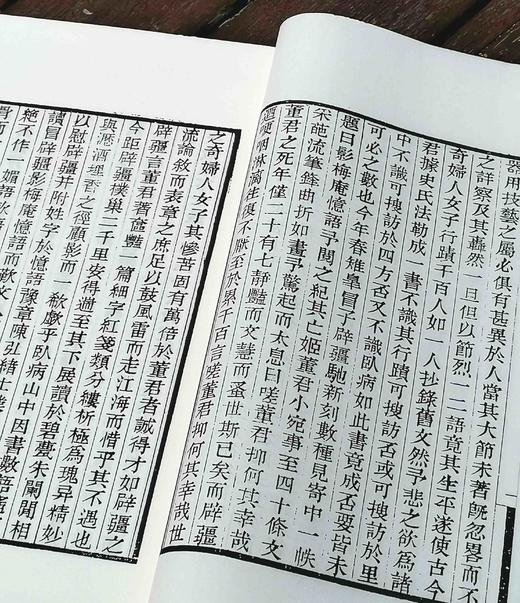 器用技藝之屬必俱有甚異於人當其大節未著旣忽畧而不
之詳察及其蕭然一旦但以節烈一二語竟其生平遂使古今
奇婦人女子行蹟千百人如一人抄錄舊文然予悲之欲爲諸
君據史氏法勒成一書不識其行蹟可搜訪否或可搜訪於里
中不識可搜訪於四方否又不識臥病如此書竟成否要皆未
可必之數也今年春雉皐冒子辟疆馳新刻數種見寄中一帙
題曰影梅庵憶語予閱之紀其亡姬董君小宛事至四十條文
采葩流筆鋒曲折如畫予驚起而太息曰嗟董君抑何其幸哉
董君之死年僅二十有七靜豔而文慧而蚤世斯已矣而辟疆
哽咽淋漓往復不厭至於累千百言嗟董君抑何其幸哉世
之奇婦人女子其慘苦固有萬倍於董君者誠得才如辟疆之
流論敘而表章之庶足以鼓風雷而走江海而惜乎其不遇也
辟疆言董君著奩豔一篇細字紅箋類分縷析極爲瑰异精妙
今距辟疆樸巢二千里安得遊至其下展讀於碧蕤朱闌閒相
與瀝酒埋香之徑顧影而一欷歔乎臥病山中因書數語
以慰辟疆並附姓字於憶語豫章陳弘緒士
讀冒辟疆影梅庵憶語而歎文
絶不作一媚語
骨而